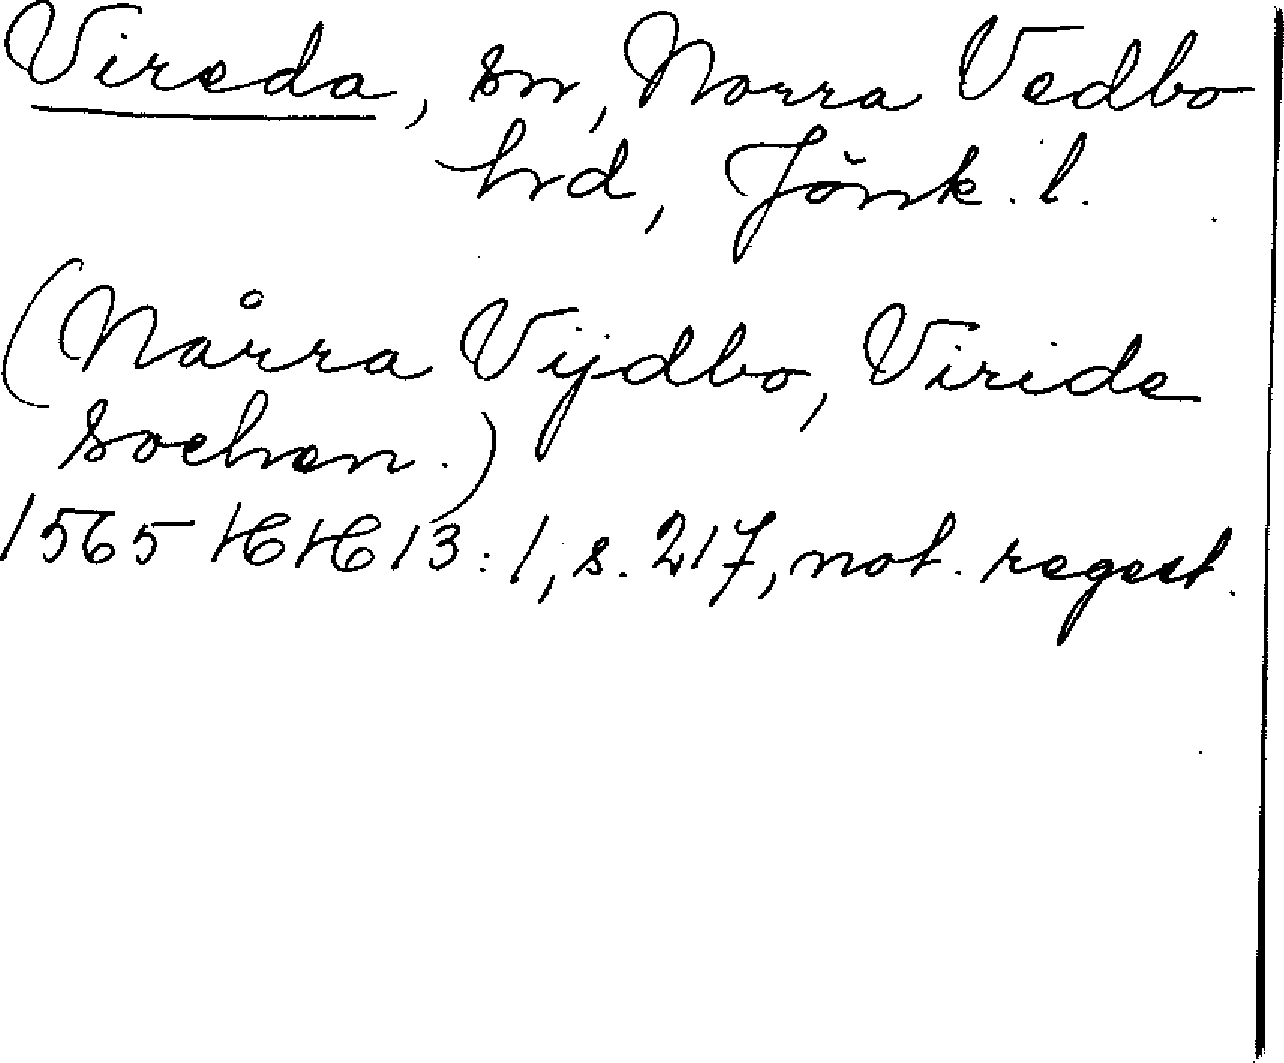 Vireda, sn, Norra Vedbo
hrd, Jönk. l.
(Nårra Vijdbo, Viride
sochen.)
1565 HH 13:1, s. 217, not. regest.